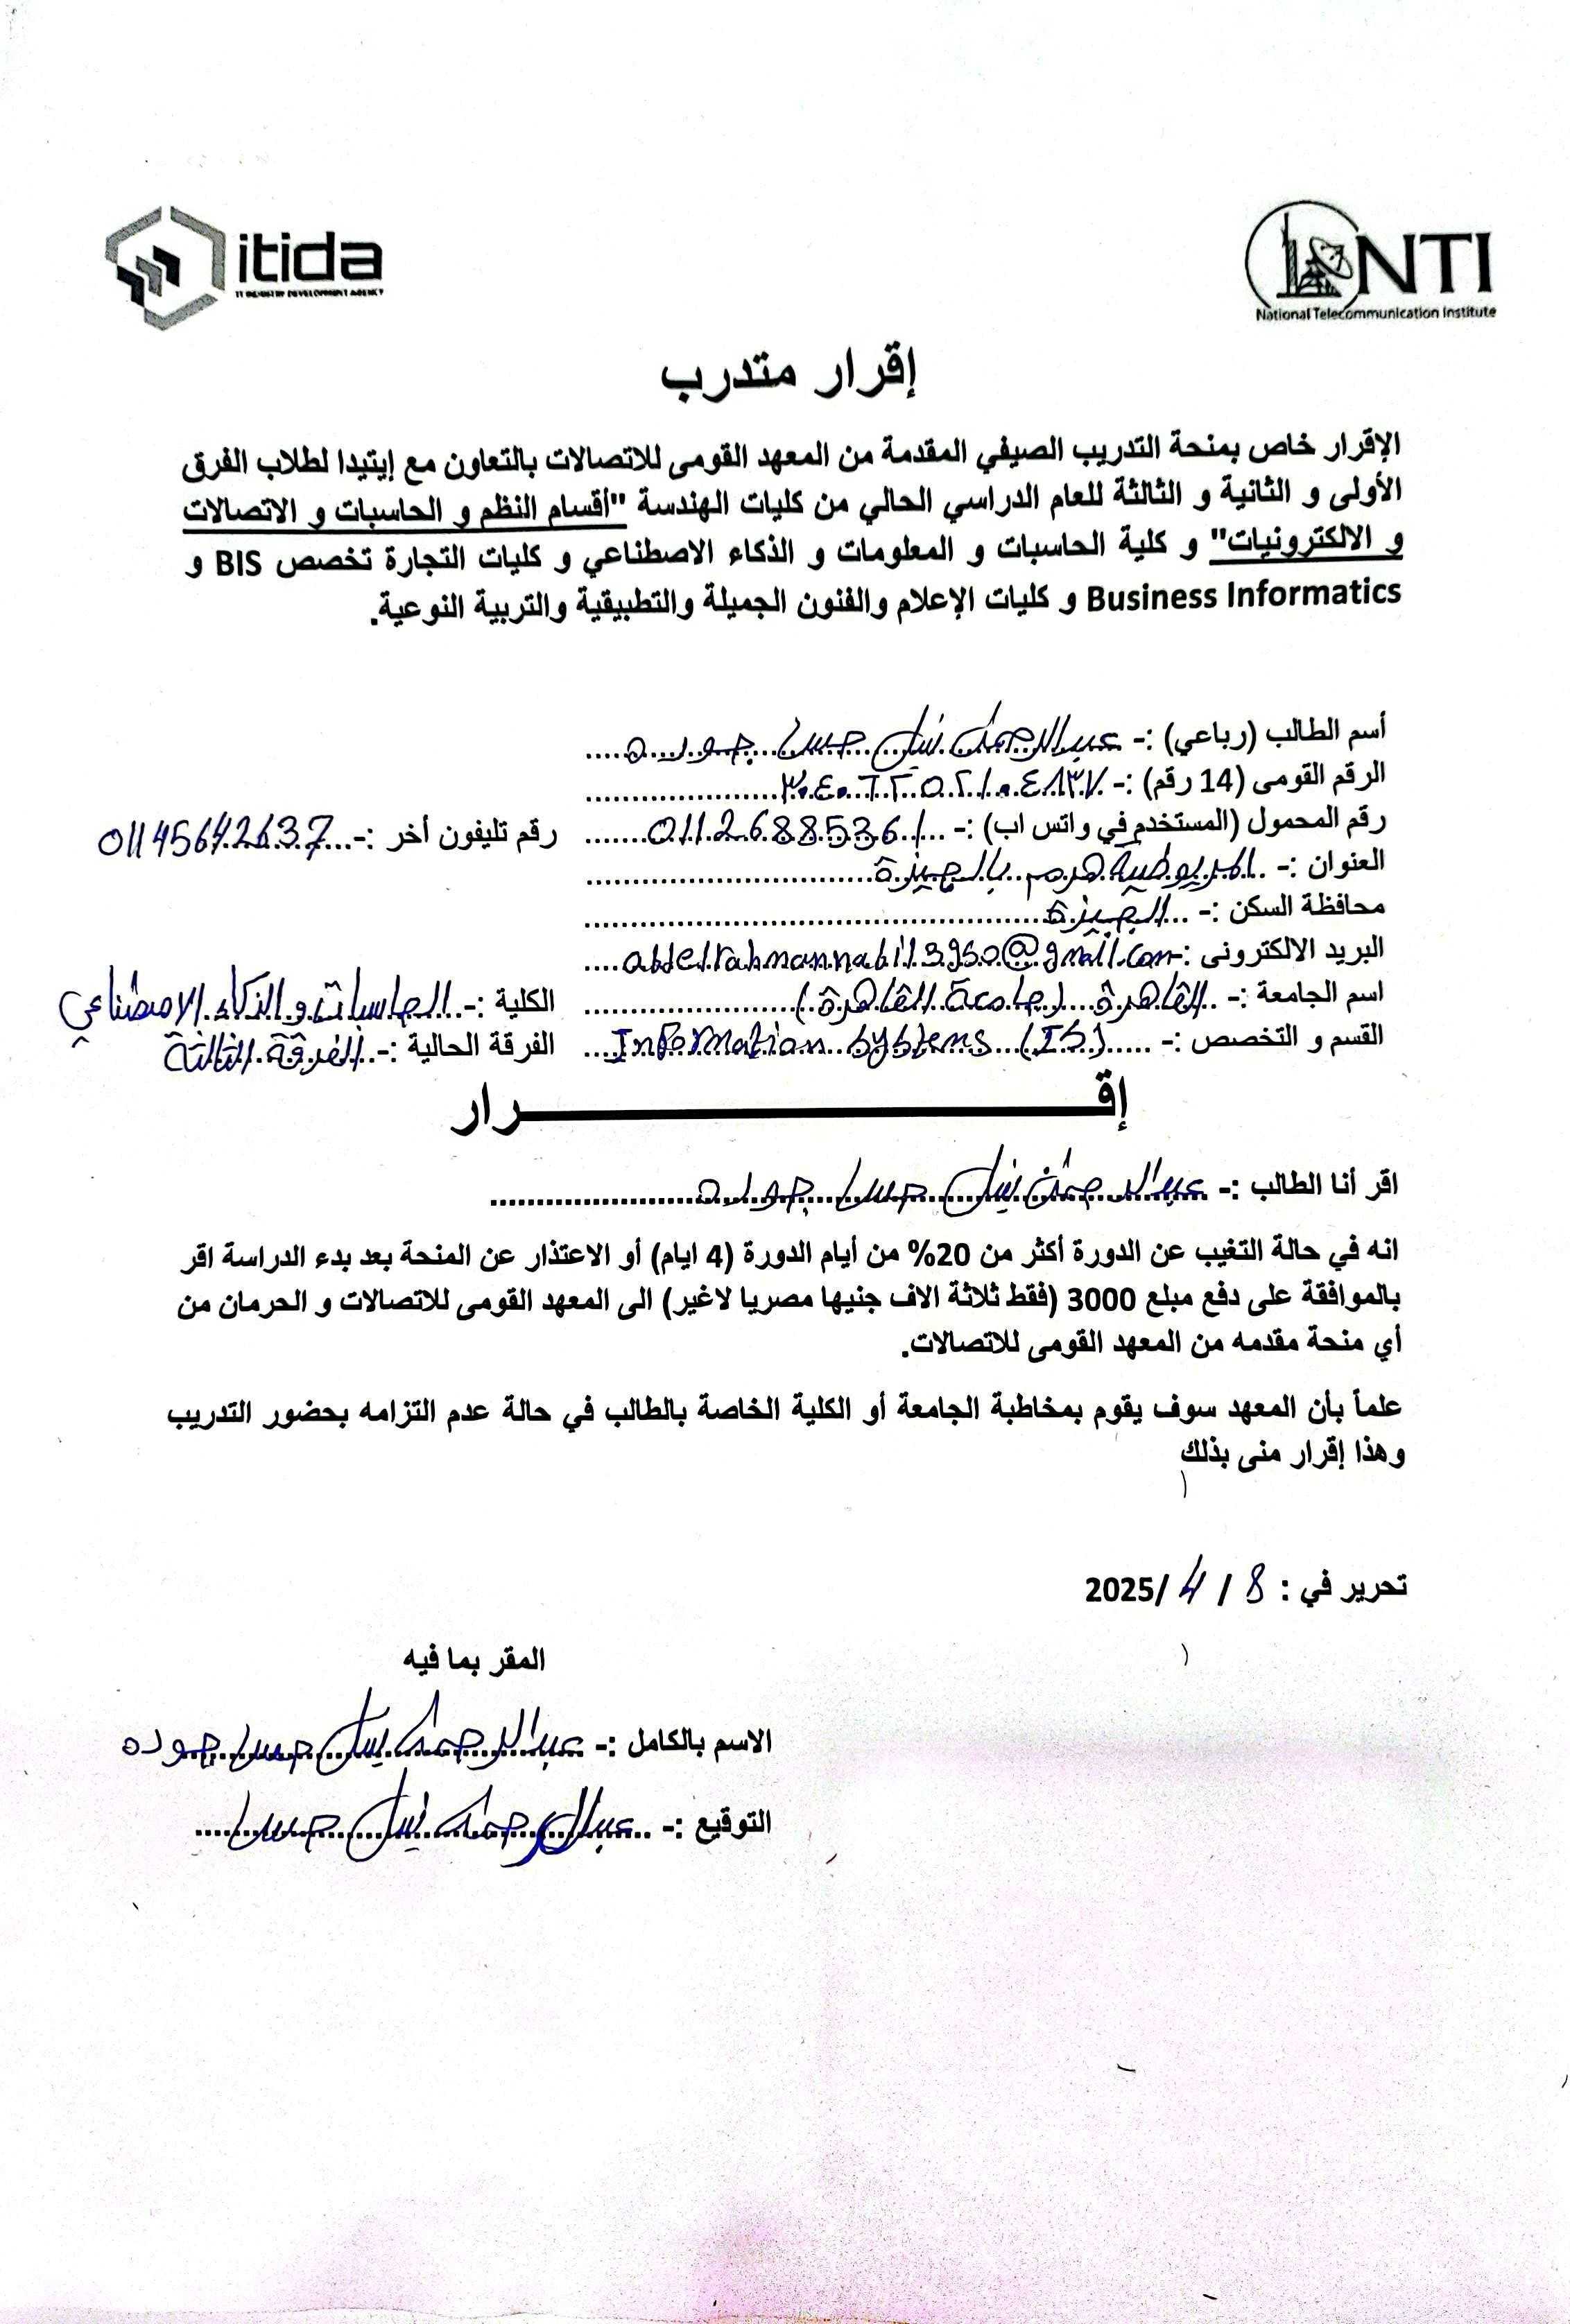 itida
IT INDUSTRY DEVELOPMENT AGENCY
NTI
National Telecommunication Institute
إقرار متدرب
الإقرار خاص بمنحة التدريب الصيفي المقدمة من المعهد القومى للاتصالات بالتعاون مع إيتيدا لطلاب الفرق
الأولى و الثانية و الثالثة للعام الدراسي الحالي من كليات الهندسة "أقسام النظم و الحاسبات و الاتصالات
و الالكترونيات" و كلية الحاسبات و المعلومات و الذكاء الاصطناعي و كليات التجارة تخصص BIS و
Business Informatics و كليات الإعلام والفنون الجميلة والتطبيقية والتربية النوعية.
أسم الطالب (رباعي) :- عبدالرحمن نبيل حسن جوده
الرقم القومى (14 رقم) :- ٣٠٤٠٦٢٥٠٢١٠٤٨٣٧
رقم المحمول (المستخدم في واتس اب) :- 01126885361 رقم تليفون أخر :- 01145642637
العنوان :- المريوطية هرم بالجيزة
محافظة السكن :- الجيزة
البريد الالكترونى :- abdelrahmannabil3950@gmail.com
اسم الجامعة :- القاهرة (جامعة القاهرة) الكلية :- الحاسبات و الذكاء الاصطناعي
القسم و التخصص :- Information Systems (IS) الفرقة الحالية :- الفرقة الثالثة
إقـــــــــرار
اقر أنا الطالب :- عبدالرحمن نبيل حسن جوده
انه في حالة التغيب عن الدورة أكثر من 20% من أيام الدورة (4 ايام) أو الاعتذار عن المنحة بعد بدء الدراسة اقر
بالموافقة على دفع مبلغ 3000 (فقط ثلاثة الاف جنيها مصريا لاغير) الى المعهد القومى للاتصالات و الحرمان من
أي منحة مقدمه من المعهد القومى للاتصالات.
علماً بأن المعهد سوف يقوم بمخاطبة الجامعة أو الكلية الخاصة بالطالب في حالة عدم التزامه بحضور التدريب
وهذا إقرار منى بذلك
تحرير في : 8 / 4 /2025
المقر بما فيه
الاسم بالكامل :- عبدالرحمن نبيل حسن جوده
التوقيع :- عبدالرحمن نبيل حسن